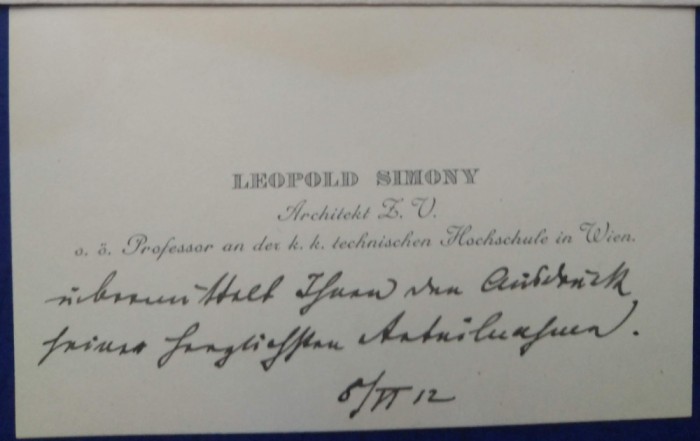 LEOPOLD SIMONY
Architekt Z. V.
o. ö. Professor an der k. k. technischen Hochschule in Wien.
übermittelt Ihnen den Ausdruck
seiner herzlichsten Anteilnahme.
5/VI 12